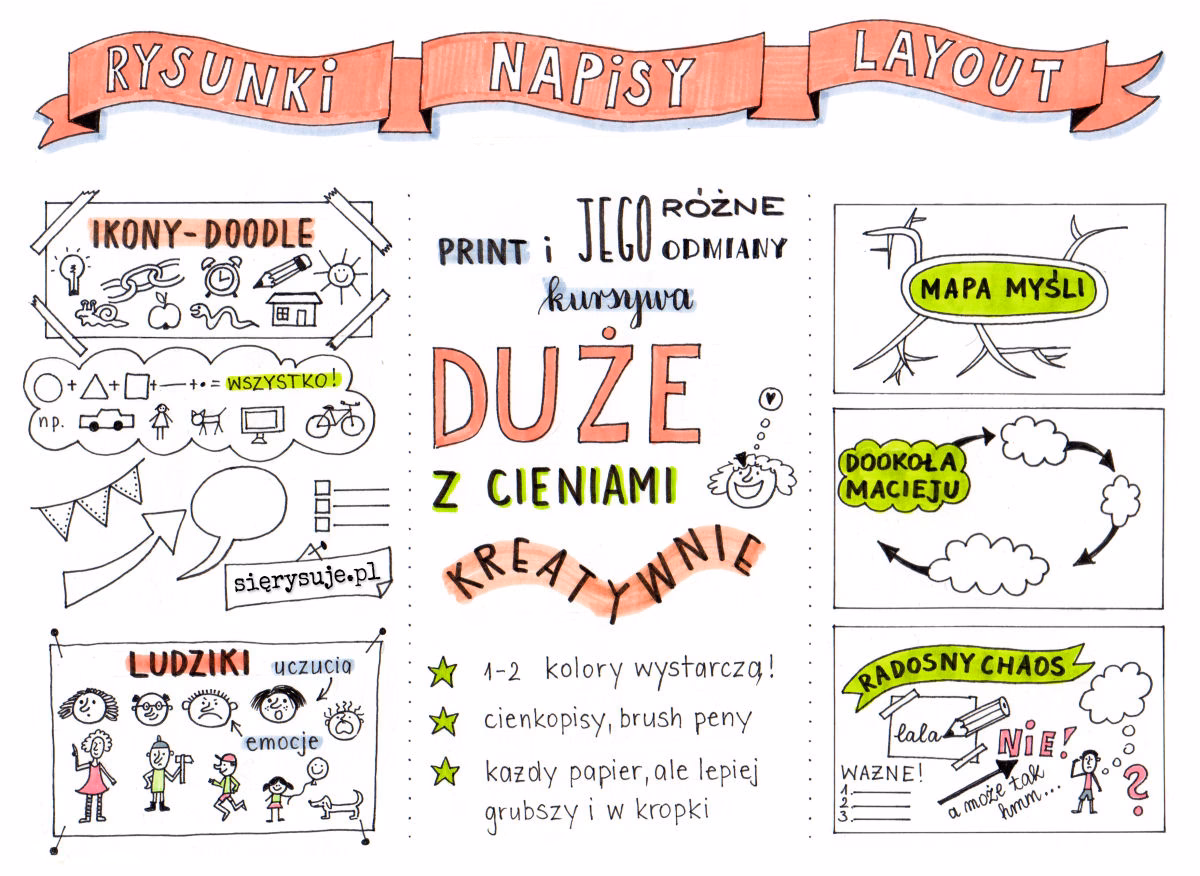 RYSUNKi
NAPiSY
LAYOUT
IKONY-DOODLE
+ + + + • = WSZYSTKO!
np.
sięrysuje.pl
LUDZIKI uczucia
emocje
PRINT i JEGO RÓŻNE
ODMIANY
kursywa
DUŻE
Z CIENIAMI
KREATYWNIE
1-2 kolory wystarczą!
cienkopisy, brush peny
każdy papier, ale lepiej
grubszy i w kropki
MAPA MYŚLI
DOOKOŁA
MACIEJU
RADOSNY CHAOS
lala
NiE!
WAŻNE!
1.
2.
3.
a może tak
hmm...
?